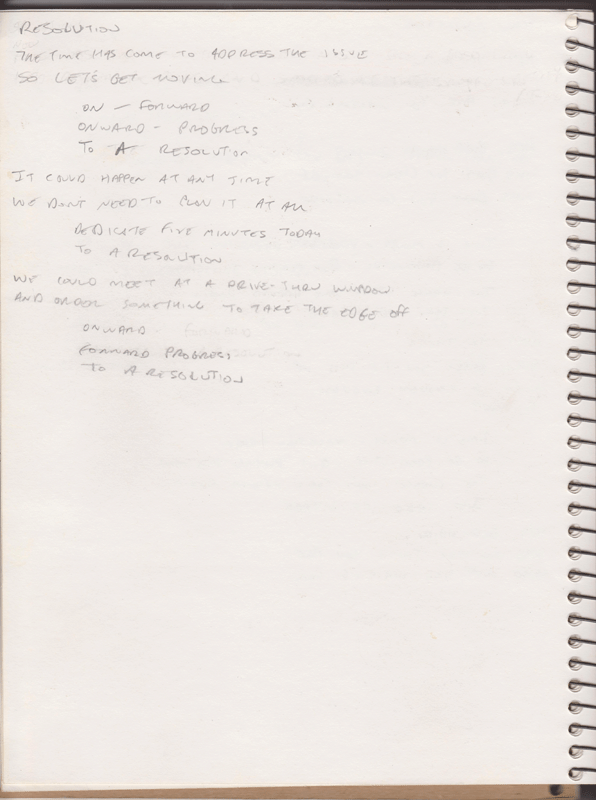 RESOLUTION
THE TIME HAS COME TO ADDRESS THE ISSUE
SO LET'S GET MOVING
ON - FORWARD
ONWARD - PROGRESS
TO A RESOLUTION
IT COULD HAPPEN AT ANY TIME
WE DON'T NEED TO PLAN IT AT ALL
DEDICATE FIVE MINUTES TODAY
TO A RESOLUTION
WE COULD MEET AT A DRIVE-THRU WINDOW
AND ORDER SOMETHING TO TAKE THE EDGE OFF
ONWARD
FORWARD PROGRESS
TO A RESOLUTION